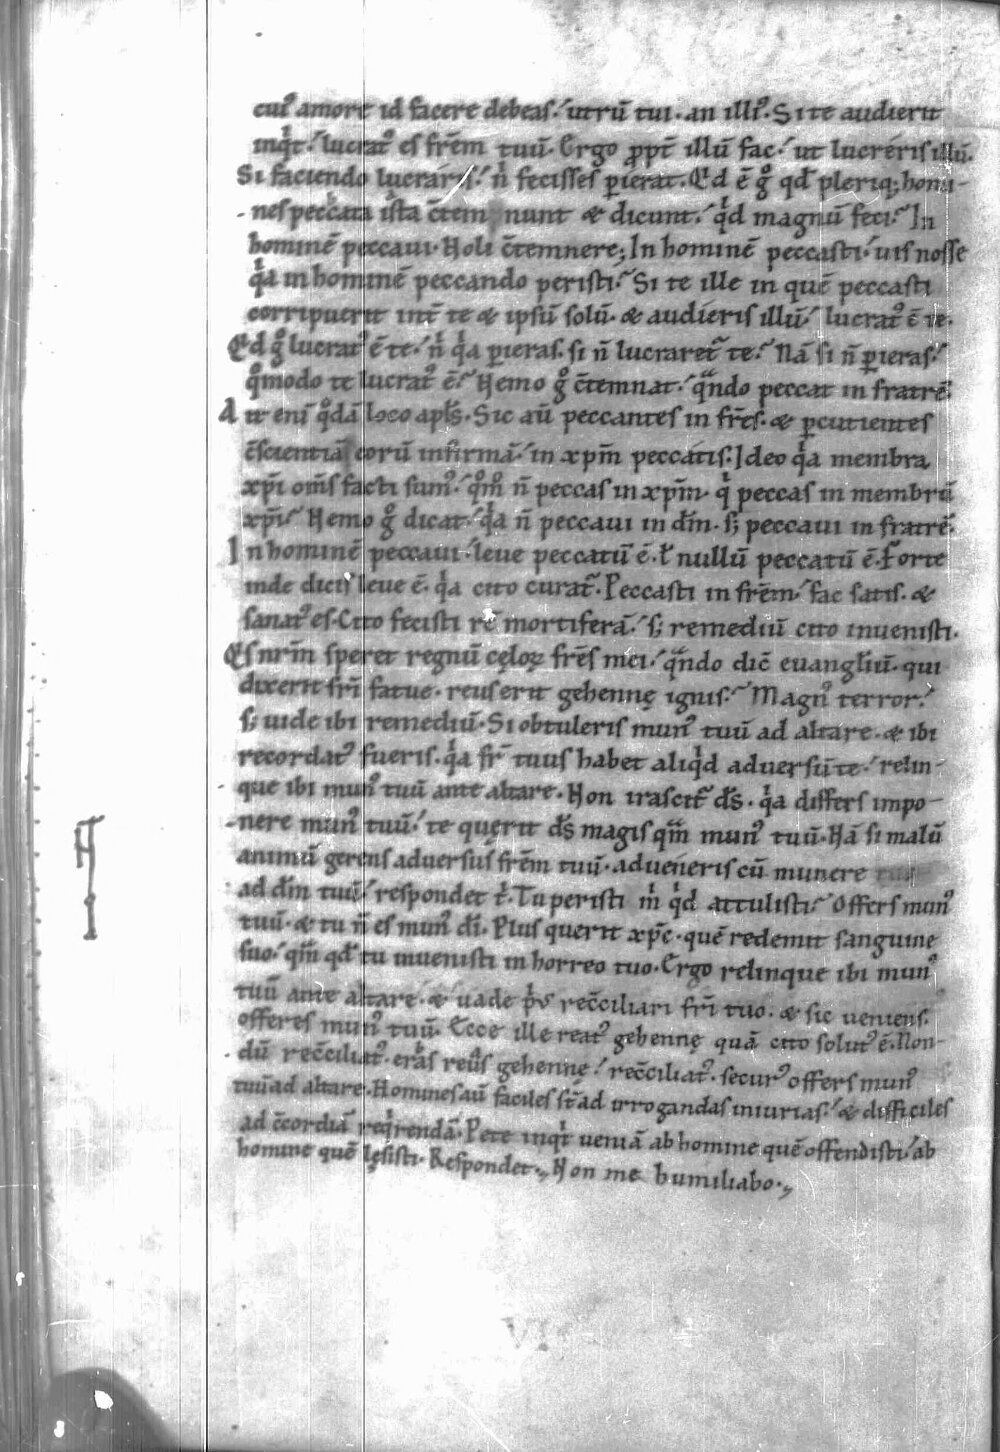 cui᷒ amore id facere debeas. utrū tui. an illi᷒. Si te audierit
inqͥt. lucrat᷒ es frēm tuū. Ergo ꝓpt̄ illū fac. ut lucreris illū.
Si faciendo lucraris. n̄ fecisses ꝑierat. Qd ē gͦ qd pleriq; homi-
nes peccata ista c̄tempnunt & dicunt. qͥd magnū feci. In
hominē peccaui. Noli c̄temnere; In hominē peccasti. uis nosse
qͥa in hominē peccando peristi. Si te ille in quē peccasti
corripuerit int̄ te & ipsū solū. & audieris illū. lucrat᷒ ē te.
Qd gͦ lucrat᷒ ē te. n̄ qͥa ꝑieras. si n̄ lucraret᷒ te. Nā si n̄ ꝑieras.
qͦmodo te lucrat᷒ ē. Nemo gͦ c̄temnat. qᷓndo peccat in fratrē.
Ait eni qͦdā loco apl̄s. Sic aū peccantes in fr̄es. & ꝑcutientes
c̄scientiā eorū infirmā. in xpm̄ peccatis. Ideo qͥa membra
xpi̅ om̄s facti sum᷒. qͦm̊ n̄ peccas in xpm̄. qͥ peccas in membrū
xpi̅. Nemo gͦ dicat. qͥa n̄ peccaui in dm̄. s; peccaui in fratrē.
In hominē peccaui. leue peccatū ē. ł nullū peccatū ē. Forte
inde dicis leue ē. qͥa cito curat᷒. Peccasti in frēm. fac satis. &
sanat᷒ es. Cito fecisti rē mortiferā. s; remediū cito inuenisti.
Qs nr̄m speret regnū cęloꝝ frēs mei. qᷓndo dic̄ euangliū. qui
dixerit fri̅ fatue. reus erit gehennę ignis. Magn᷒ terror.
s; uide ibi remediū. Si obtuleris mun᷒ tuū ad altare. & ibi
recordat᷒ fueris. qͥa fr̄ tuus habet aliqͥd aduersū te. relin-
que ibi mun᷒ tuū ante altare. Non irascit᷒ ds̄. qͥa differs impo-
nere mun᷒ tuū. te quęrit ds̄ magis qᷓm mun᷒ tuū. Nā si malū
animū gerens aduersus frēm tuū. adueneris cū munere
ad dm̄ tuū. respondet t̄. Tu peristi mͥ qͥd attulisti. Offers mun᷒
tuū. & tu n̄ es mun᷒ di̅. Plus querit xpc̄. quē redemit sanguine
suo. qᷓm qd tu inuenisti in horreo tuo. Ergo relinque ibi mun᷒
tuū ante altare. & uade pͥ᷒ rec̄ciliari fri̅ tuo. & sic ueniens.
offeres mun᷒ tuū. Ecce ille reat᷒ gehennę quā cito solut᷒ ē. Non-
dū rec̄ciliat᷒. eras reus gehennę. rec̄ciliat᷒. secur᷒ offers mun᷒
tuū ad altare. Homines aū faciles st̄ ad irrogandas iniurias. & difficiles
ad c̄cordiā reqͥrendā. Pete inqͥt ueniā ab homine quē offendisti. ab
homine quē lęsisti. Respondet. Non me humiliabo.